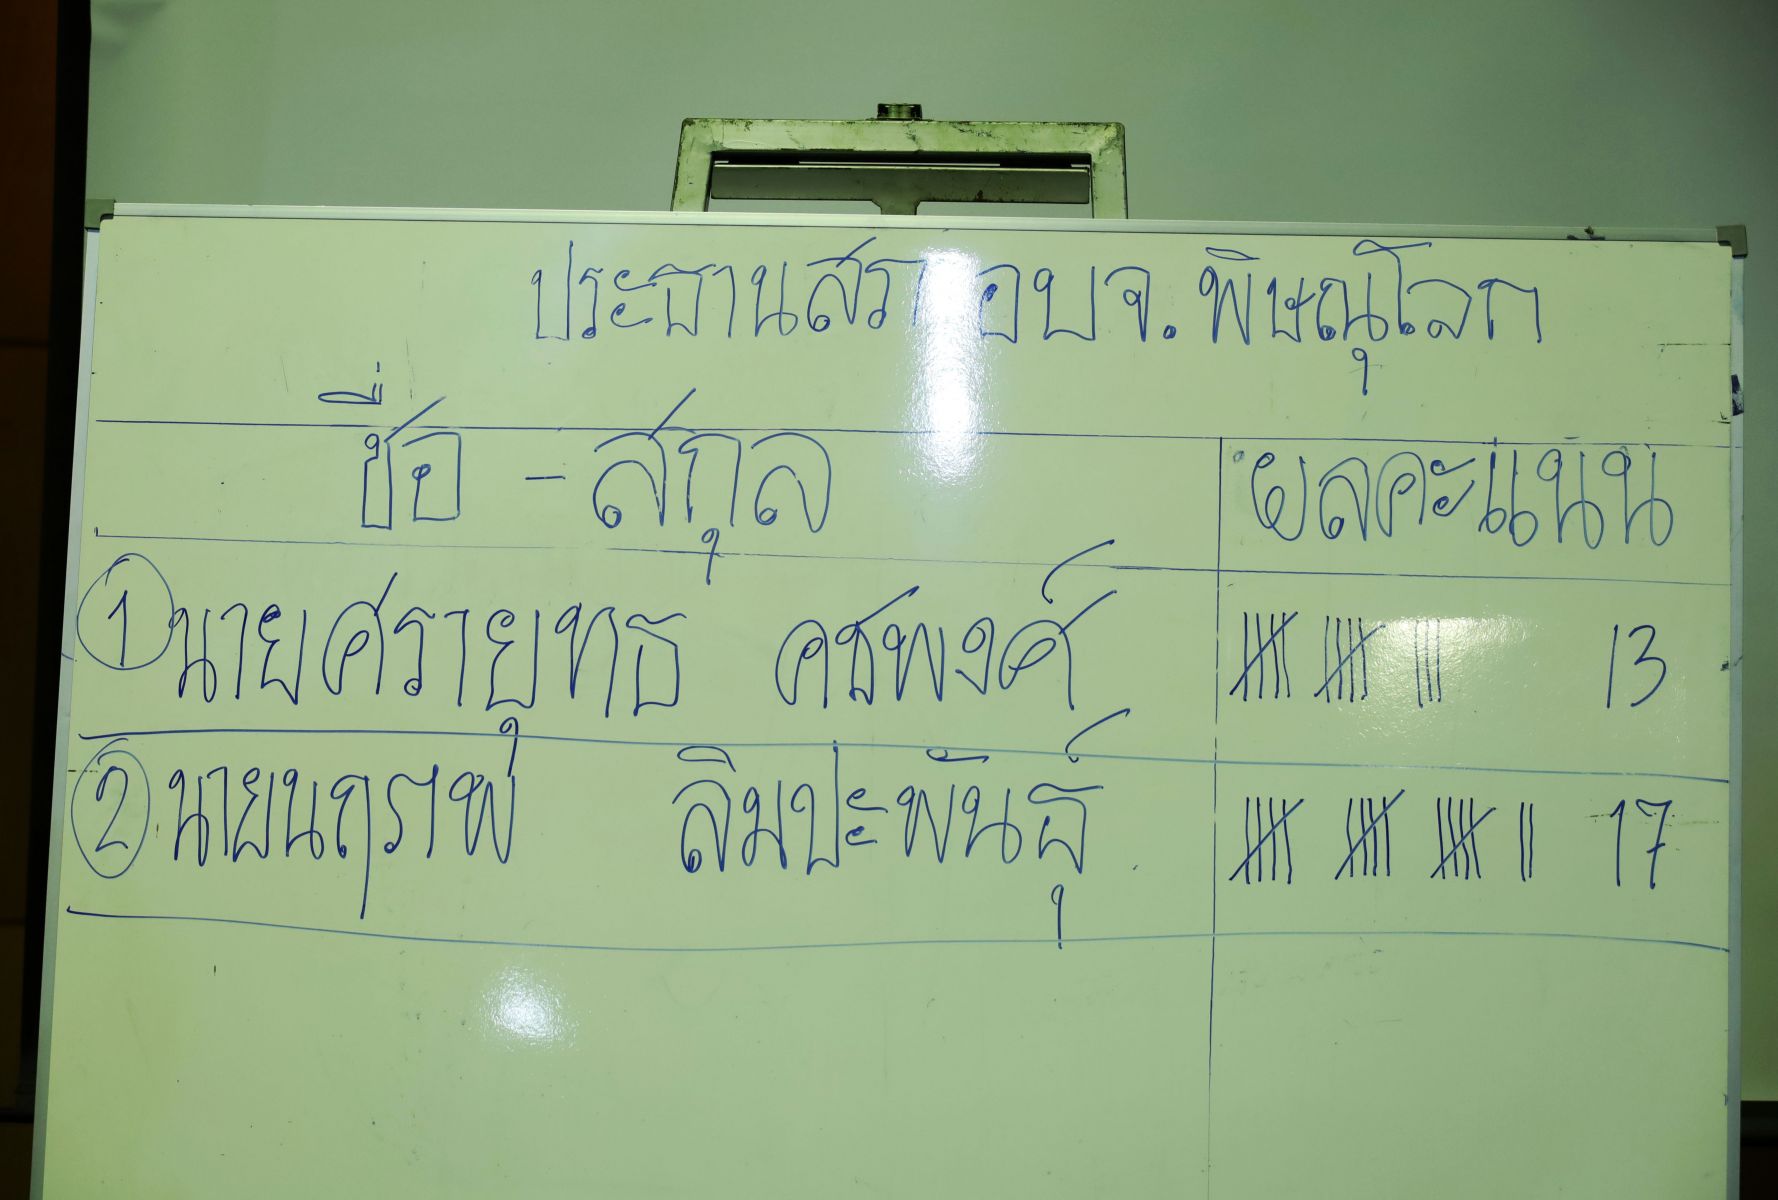 ประธานสภา อบจ.พิษณุโลก
ชื่อ - สกุล ผลคะแนน
1 นายศรายุทธ คชพงศ์ 13
2 นายนฤรพ ลิมปะพันธุ์ 17